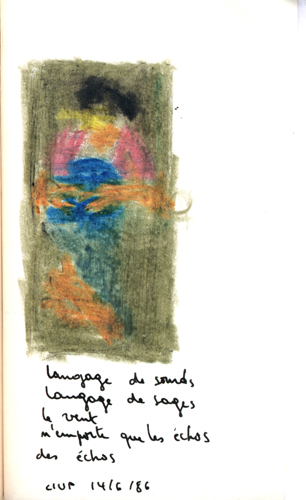 langage de sourds
langage de sages
le vent
n'emporte que les échos
des échos
CIUP 14/6/86